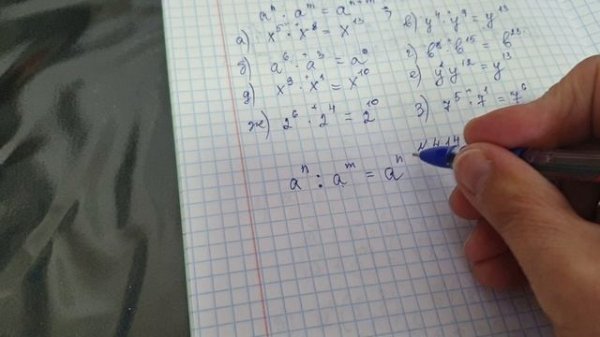 aⁿ · aᵐ = aⁿ⁺ᵐ ;
а) x⁵ · x⁸ = x¹³ в) y⁴ · y⁹ = y¹³
б) a⁶ · a³ = a⁹ г) b⁸ · b¹⁵ = b²³
д) x⁹ · x¹ = x¹⁰ е) y¹ y¹² = y¹³
ж) 2⁶ · 2⁴ = 2¹⁰ з) 7⁵ · 7¹ = 7⁶
N 414
aⁿ : aᵐ = aⁿ